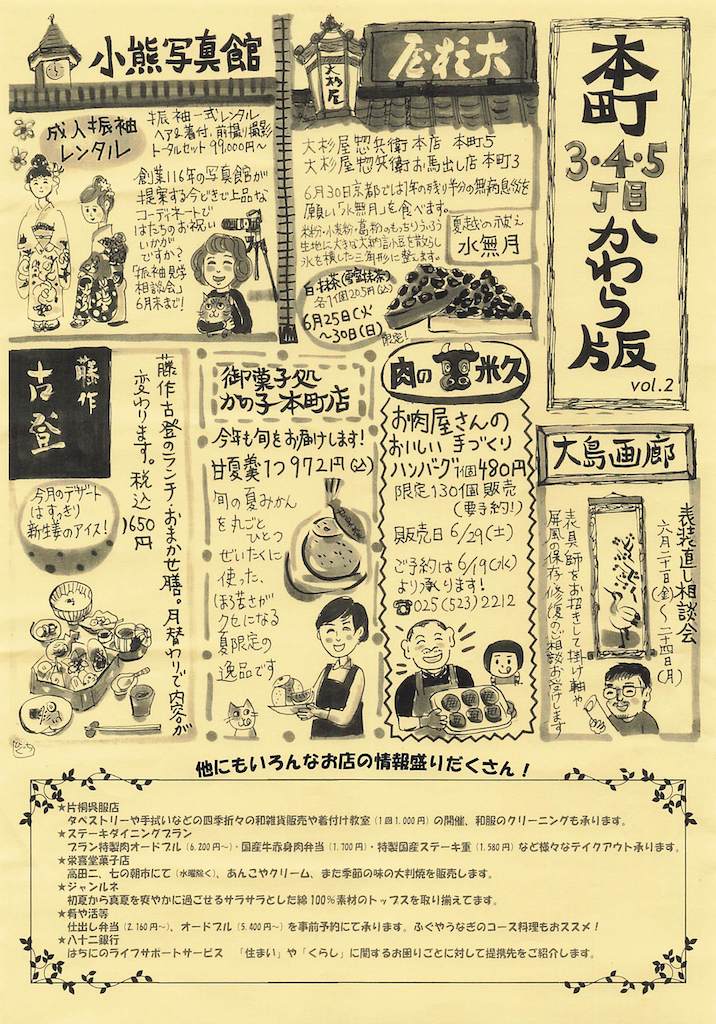 本町
3・4・5
丁目
かわら版
vol.2
大杉屋
大杉屋
大杉屋惣兵衛本店 本町5
大杉屋惣兵衛お馬出し店 本町3
6月30日京都では1年の残り半分の無病息災を
願い「水無月」を食べます。
米粉・小麦粉・葛粉のもっちりういろう
生地に大きな大納言小豆を散らし
氷を模した三角形に整えます。
夏越の祓え
水無月
白・抹茶(雪室抹茶)
各1個205円(込)
6月25日(火)
~30日(日)
限定!
小熊写真館
成人振袖
レンタル
振袖一式レンタル
ヘア&着付、前撮り撮影
トータルセット99,000円~
創業116年の写真館が
提案する今どきで上品な
コーディネートで
はたちのお祝い
いかが
ですか?
「振袖見学
相談会」
6月末まで!
大島画廊
表装直し相談会
六月二十日(金)~二十四日(月)
表具師をお招きして掛け軸や
屏風の保存、修復のご相談お受けします
肉の米久
お肉屋さんの
おいしい手づくり
ハンバーグ1個480円
限定130個販売
(要予約!)
販売日 6/29(土)
ご予約は 6/19(水)
より承ります!
☎025(523)2212
御菓子処
かの子本町店
今年も旬をお届けします!
甘夏羹 1つ972円(込)
旬の夏みかん
を丸ごと
ひとつ
ぜいたくに
使った、
ほろ苦さが
クセになる
夏限定の
逸品です
藤作
古登
藤作古登のランチ・おまかせ膳。月替わりで内容が
変わります。税込1650円
今月のデザート
はすっきり
新生姜のアイス!
他にもいろんなお店の情報盛りだくさん!
★片桐呉服店
タペストリーや手拭いなどの四季折々の和雑貨販売や着付け教室(1回1.000円)の開催、和服のクリーニングも承ります。
★ステーキダイニングブラン
ブラン特製肉オードブル(6,200円~)・国産牛赤身肉弁当(1.700円)・特製国産ステーキ重(1.580円)など様々なテイクアウト承ります。
★栄喜堂菓子店
高田二、七の朝市にて(水曜除く)、あんこやクリーム、また季節の味の大判焼を販売します。
★ジャンルネ
初夏から真夏を爽やかに過ごせるサラサラとした綿100%素材のトップスを取り揃えてます。
★肴や活等
仕出し弁当(2.160円~)、オードブル(5.400円~)を事前予約にて承ります。ふぐやうなぎのコース料理もおススメ!
★八十二銀行
はちにのライフサポートサービス 「住まい」や「くらし」に関するお困りごとに対して提携先をご紹介します。